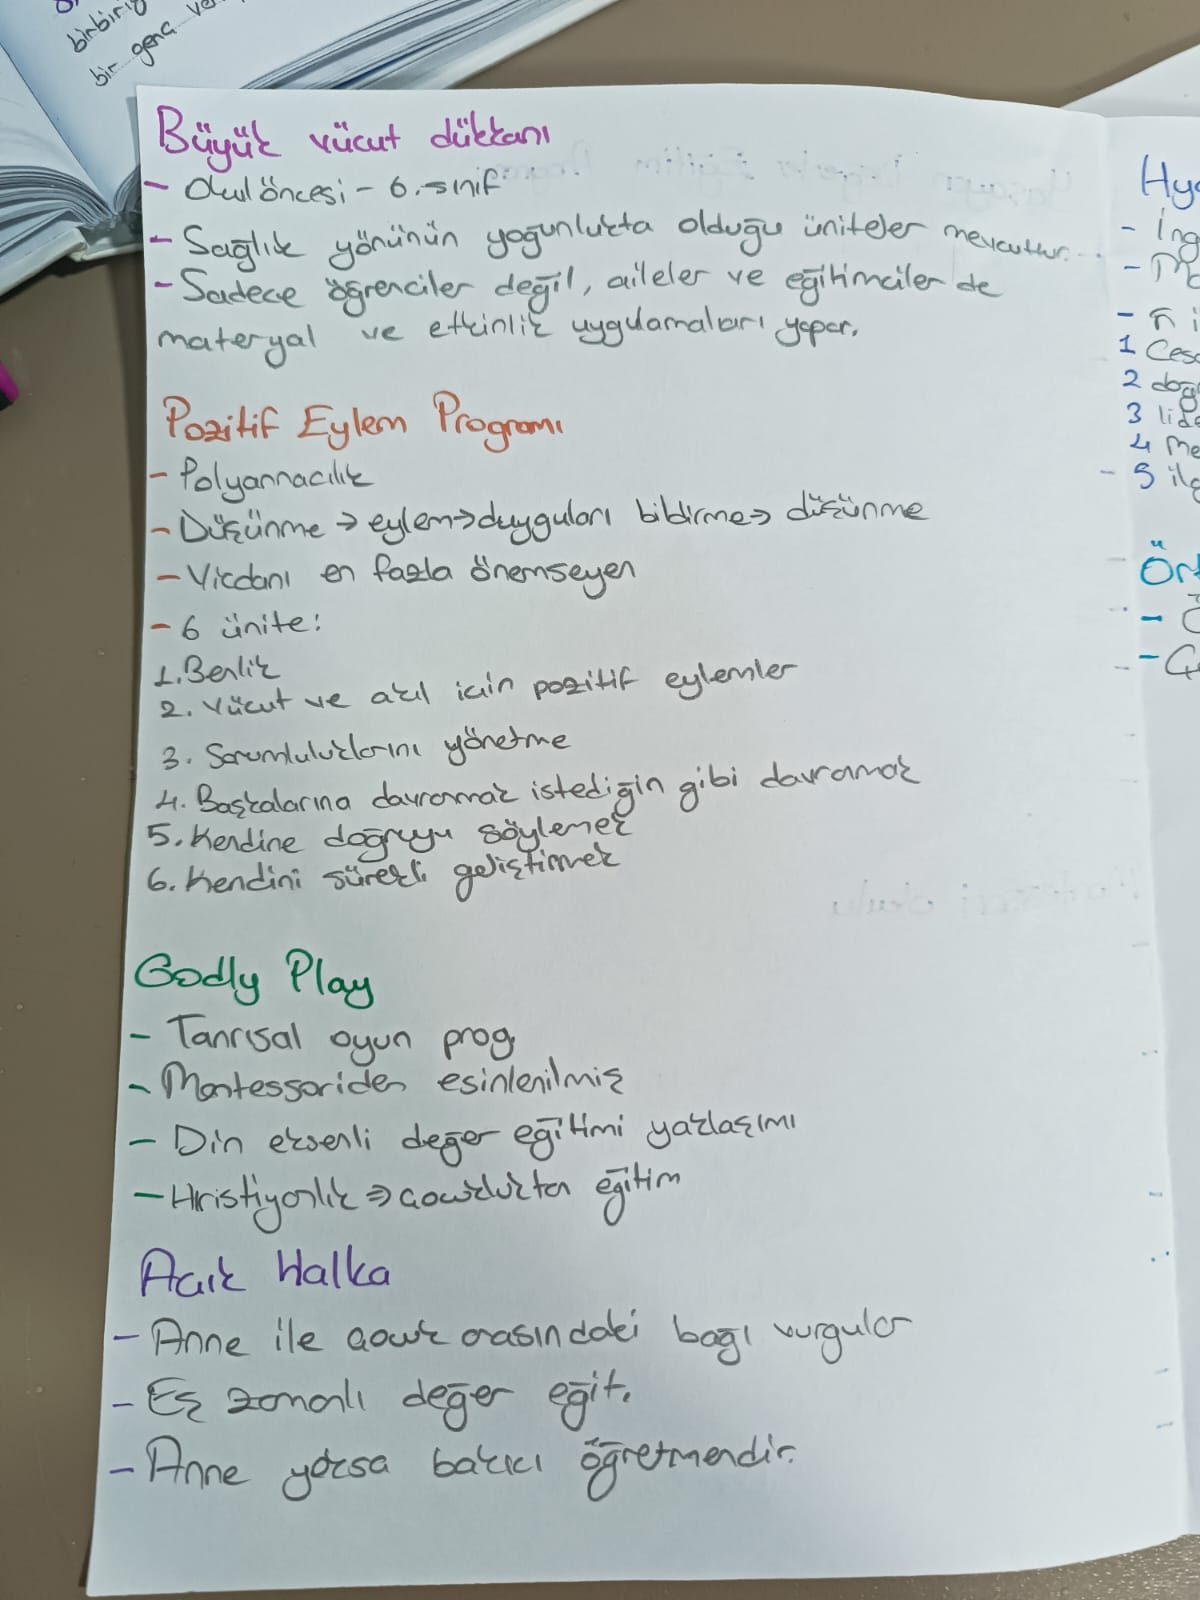 birbiri
bir genç ve
Büyük vücut dükkanı
- Okul öncesi - 6. sınıf
- Sağlık yönünün yoğunlukta olduğu üniteler mevcuttur.
- Sadece öğrenciler değil, aileler ve eğitimciler de
materyal ve etkinlik uygulamaları yapar.
Pozitif Eylem Programı
- Polyannacılık
- Düşünme → eylem → duyguları bildirme → düşünme
- Vicdanı en fazla önemseyen
- 6 ünite:
1. Benlik
2. Vücut ve akıl için pozitif eylemler
3. Sorumluluklarını yönetme
4. Başkalarına davranmak istediğin gibi davranmak
5. Kendine doğruyu söylemek
6. Kendini sürekli geliştirmek
Godly Play
- Tanrısal oyun prog.
- Montessoriden esinlenilmiş
- Din eksenli değer eğitimi yaklaşımı
- Hristiyanlık ⇒ çocukluktan eğitim
Açık Halka
- Anne ile çocuk arasındaki bağı vurgular
- Eş zamanlı değer eğit.
- Anne yoksa bakıcı öğretmendir.
- İng
1 Cesa
2 doğ
3 lide
4 Me